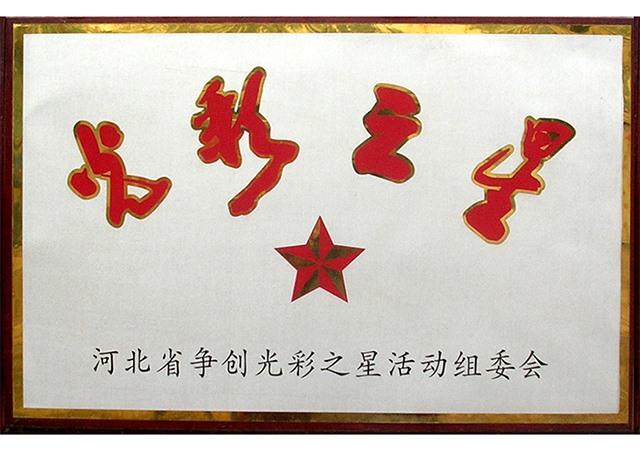 光彩之星
河北省争创光彩之星活动组委会